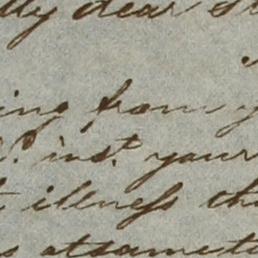 My dear S
ing from y
inst. your
illness th
at same t